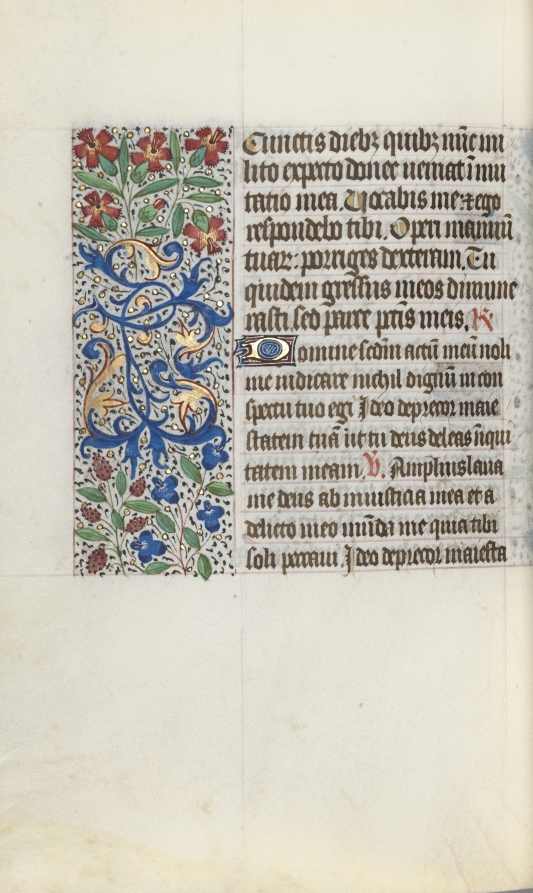 Cunctis diebꝫ quibꝫ nūc mi
lito expecto donec ueniat īmu
tatio mea. Uocabis me ⁊ ego
respondebo tibi. Operi manuū
tuaꝝ: porriges dexteram. Tu
quidem gressus meos dinume
rasti sed parce pctīs meis. R
Domine scdm̄ actū meū noli
me iudicare nichil dignū in con
spectu tuo egi Ideo deprecor maie
statem tuā ut tu deus deleas īiqui
tatem meam. V. Amplius laua
me deus ab iniusticia mea et a
delicto meo mūda me quia tibi
soli peccaui Ideo deprecor maiesta